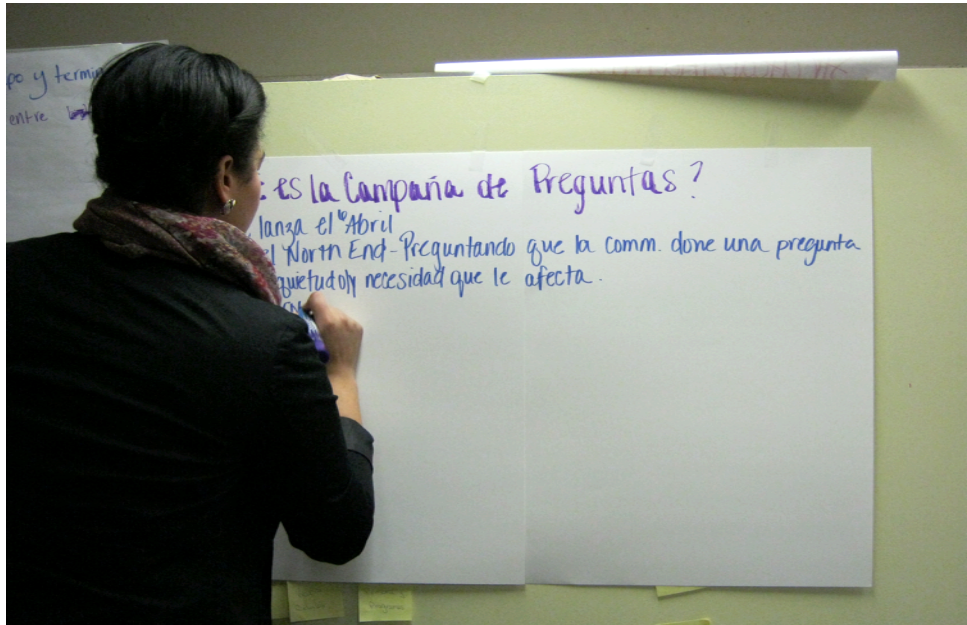 po y termin
entre
es la Campaña de Preguntas?
lanza el 6 Abril
el North End - Preguntando que la comm. done una pregunta
quietud o/y necesidad que le afecta.